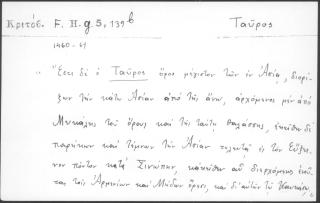 Κριτόβ. F. H. g 5, 139 b Ταῦρος
1460-61
"Ἔστι δὲ ὁ Ταῦρος ὄρος μέγιστον τῶν ἐν Ἀσίᾳ, διορί-
ζων τὴν κάτω Ἀσίαν ἀπὸ τῆς ἄνω, ἀρχόμενος μὲν ἀπὸ
Μυκάλης τοῦ ὄρους καὶ τῆς ταύτῃ θαλάσσης, ἐκεῖθεν δὲ
παρήκων καὶ τέμνων τὴν Ἀσίαν τελευτᾷ ἐς τὸν Εὔξει-
νον πόντον κατὰ Σινώπην, κἀκεῖθεν αὖ διερχόμενος
τὰς τῶν Ἀρμενίων καὶ Μήδων ὄρεσι, καὶ δι' αὐτῶν τῷ Καυκάσῳ,